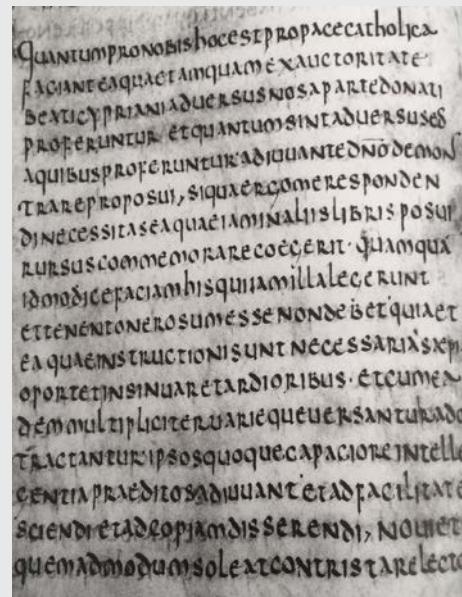 QUANTUMPRONOBISHOCESTPROPACECATHOLICA
FACIANTEAQUAETAMQUAMEXAUCTORITATE
BEATICYPRIANIADUERSUSNOSAPARTEDONATI
PROFERUNTUR ETQUANTUMSINTADUERSUSEOS
AQUIBUSPROFERUNTUR·ADIUUANTEDN̄ODEMON
TRAREPROPOSUI, SIQUAERGOMERESPONDEN
DINECESSITASEAQUAEIAMINALIISLIBRISPOSUI
RURSUSCOMMEMORARECOEGERIT· QUAMQUA
IDMODICEFACIAMHISQUIIAMILLALEGERUNT
ETTENENTONEROSUMESSENONDEBET·QUIAET
EAQUAEINSTRUCTIONISUNTNECESSARIASAEPI
OPORTETINSINUARETARDIORIBUS· ETCUMEA
DEMMULTIPLICITERUARIEQUEUERSANTURADQ
TRACTANTUR·IPSOSQUOQUECAPACIOREINTELLE
GENTIAPRAEDITOSADIUUANT·ETADFACILITATE
SCIENDIETADCOPIAMDISSERENDI, NOUIET
QUEMADMODUMSOLEATCONTRISTARELECTO